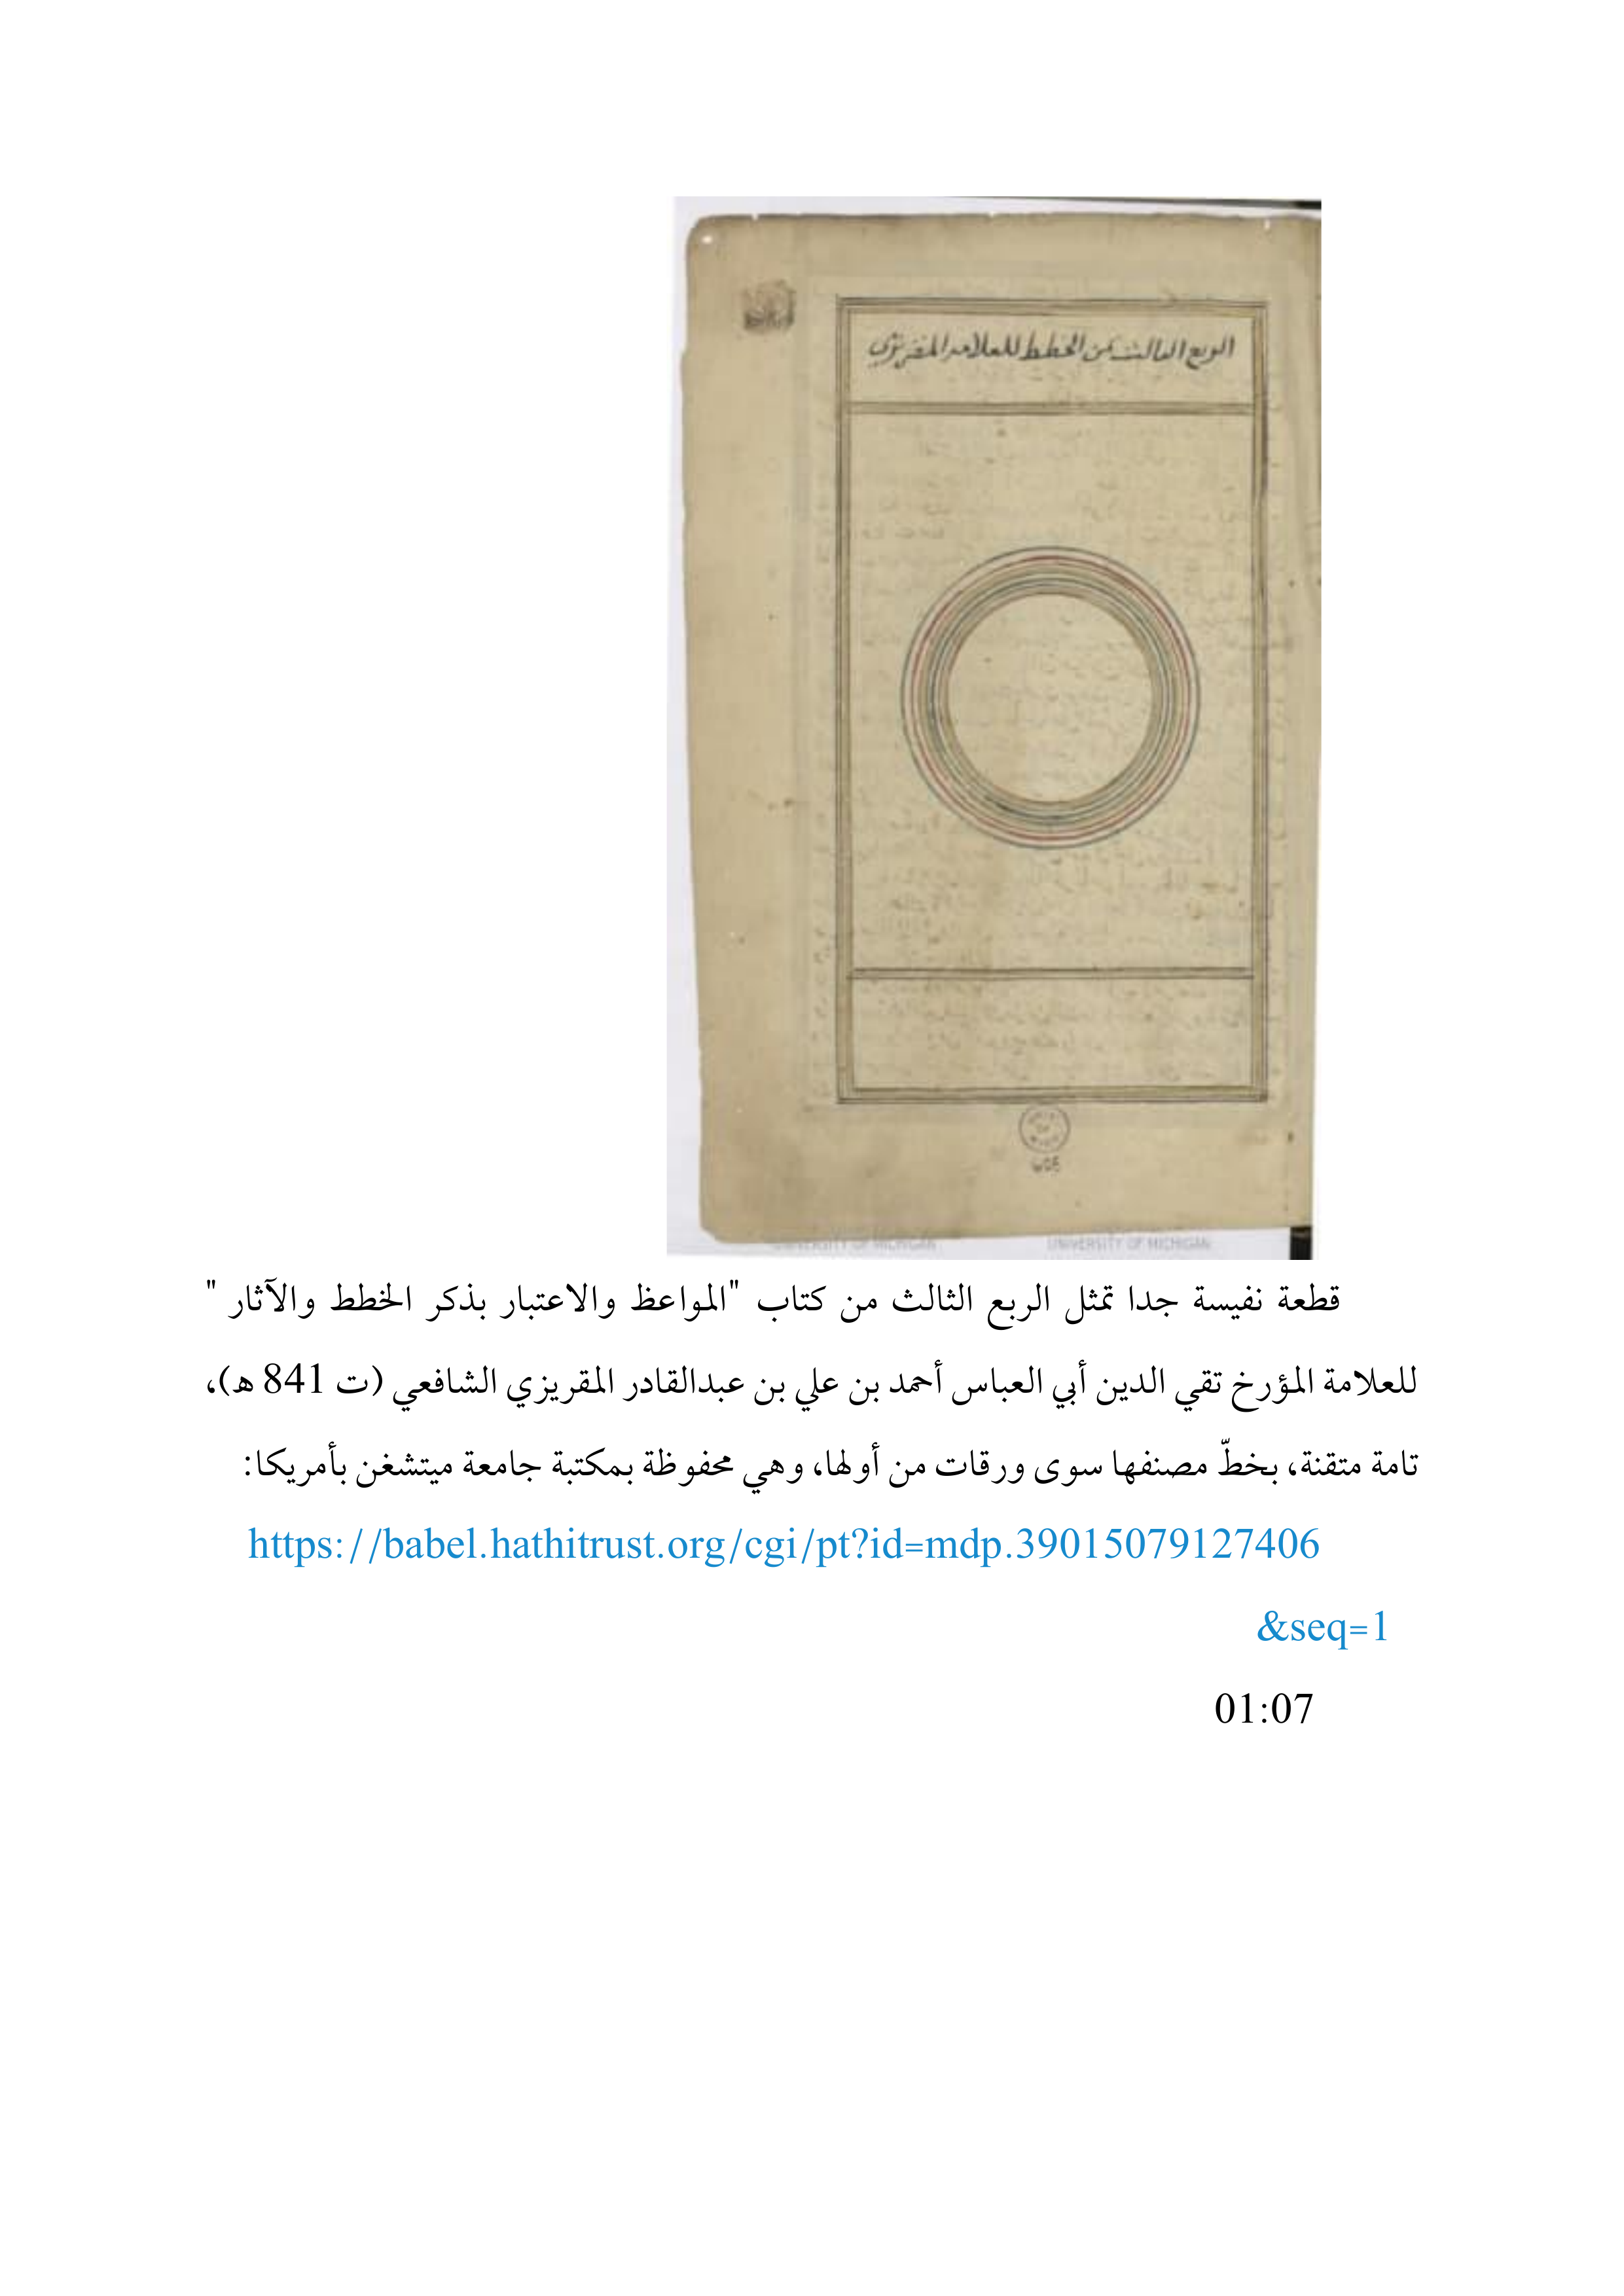 الربع الثالث من الخطط للعلامه المقريزي
UNIVERSITY OF MICHIGAN
UNIVERSITY OF MICHIGAN
قطعة نفيسة جدا تمثل الربع الثالث من كتاب "المواعظ والاعتبار بذكر الخطط والآثار "
للعلامة المؤرخ تقي الدين أبي العباس أحمد بن علي بن عبدالقادر المقريزي الشافعي (ت 841 ه)،
تامة متقنة، بخطّ مصنفها سوى ورقات من أولها، وهي محفوظة بمكتبة جامعة ميتشغن بأمريكا:
https://babel.hathitrust.org/cgi/pt?id=mdp.39015079127406
&seq=1
01:07